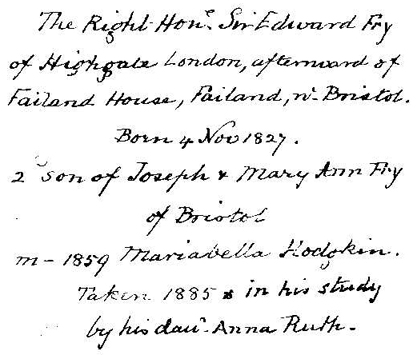 The Right Hon.e Sir Edward Fry
of Highgate London, afterward of
Failand House, Failand, nr Bristol.
Born 4 Nov 1827.
2d son of Joseph & Mary Ann Fry
of Bristol
m - 1859 Mariabella Hodgkin.
Taken 1885 in his study
by his daur. Anna Ruth.